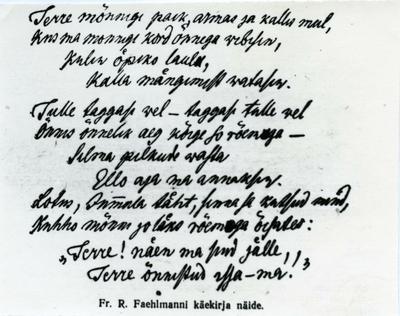 Terre mönnigi paik, armas ja kallis mul,
Kus ma monnigi kord önnega wibisin,
Kulin öpiko laulu,
Kalla mängimist watasin.
Tulle taggasi wel – taggasi tulle wel
Önnis önnelik aeg köige so röemuga –
Silma pilkude wasta
Ello aja ma annaksin.
Tummala täht, sinna ja kutsud mind,
Kuhho mönni jo läks röemuga öisates:
„Terre! näen ma sind jälle,,,
Terre önnistud assa-ma."
Fr. R. Faehlmanni käekirja näide.